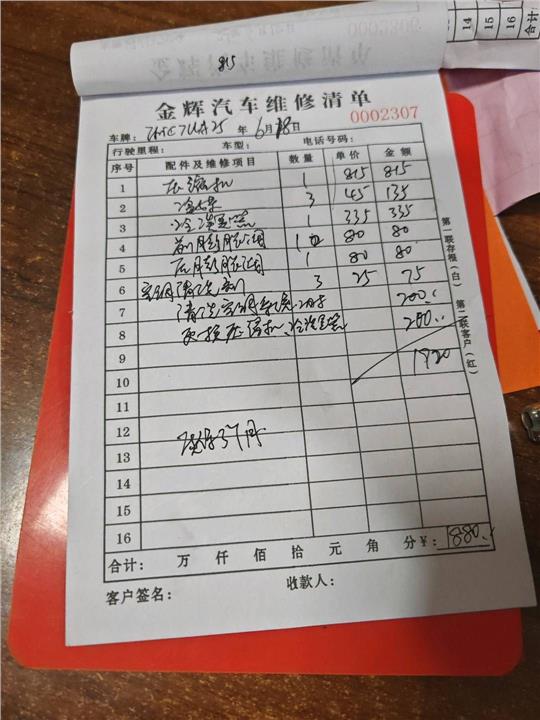 14
15
16
合计
815
金辉汽车维修清单
0002307
车牌： 年 6月18日
行驶里程： 车型： 电话号码：
序号 配件及维修项目 数量 单价 金额
1 压缩机 1 815 815
2 冷媒 3 45 135
3 冷凝器 1 335 335
4 前膨胀阀 1 80 80
5 后膨胀阀 1 80 80
6 空调清洗剂 3 25 75
7 清洗空调系统 200
8 更换压缩机、冷凝器 200
9 1920
10
11
12
13
14
15
16
合计： 万 仟 佰 拾 元 角 分 ¥： 1880
客户签名： 收款人：
第一联存根（白） 第二联客户（红）